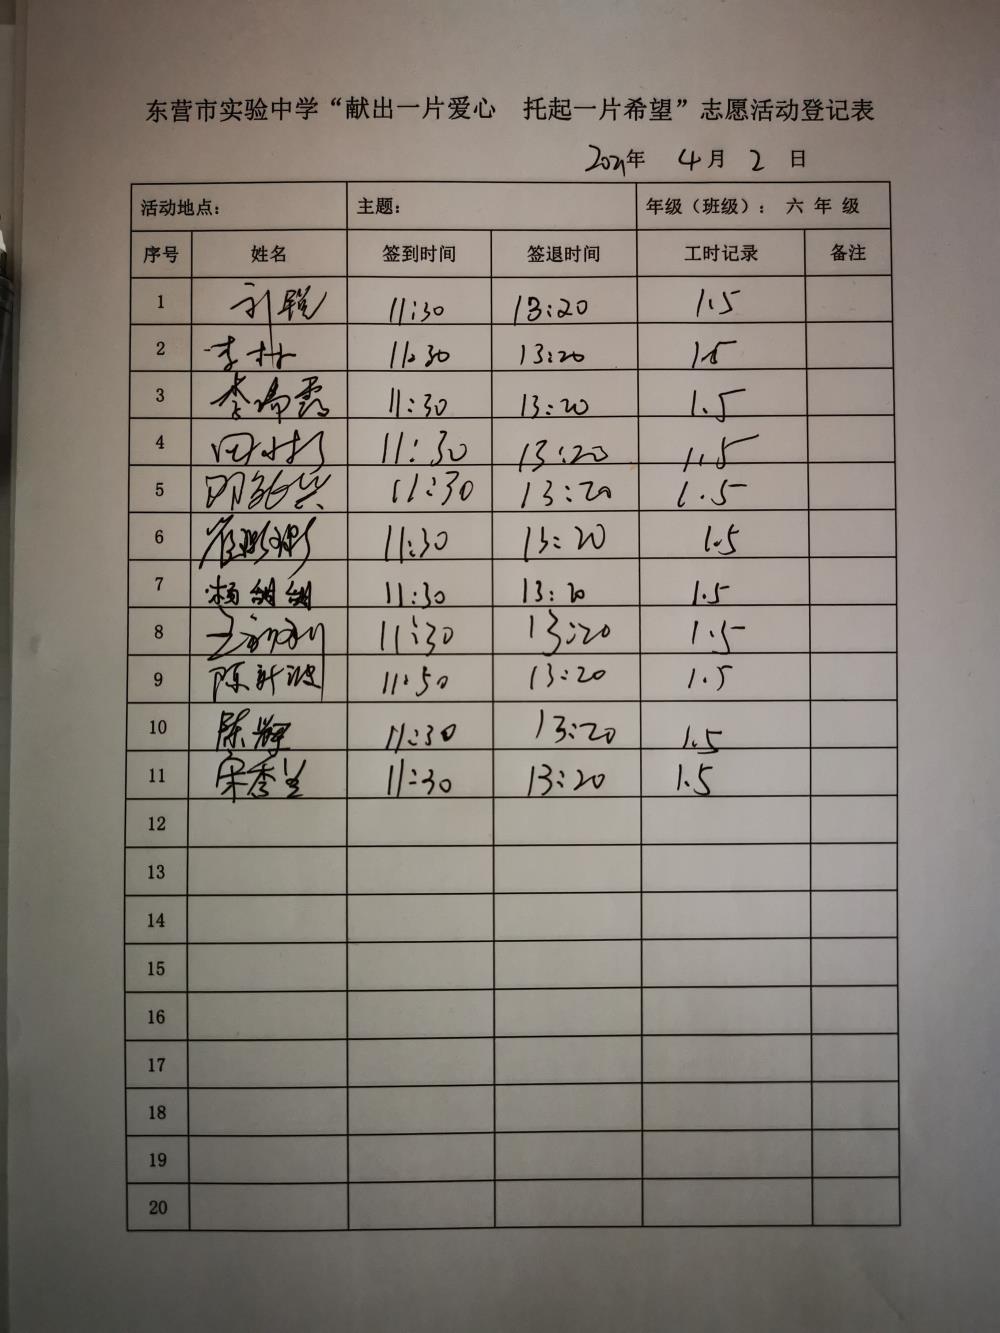 东营市实验中学“献出一片爱心 托起一片希望”志愿活动登记表
2021年 4月 2 日
活动地点： 主题： 年级（班级）： 六 年 级
序号 姓名 签到时间 签退时间 工时记录 备注
1 11:30 13:20 1.5
2 李林 11:30 13:20 1.5
3 李瑞霞 11:30 13:20 1.5
4 11:30 13:20 1.5
5 11:30 13:20 1.5
6 11:30 13:20 1.5
7 杨娟娟 11:30 13:20 1.5
8 11:30 13:20 1.5
9 陈新波 11:50 13:20 1.5
10 陈辉 11:30 13:20 1.5
11 宋秀兰 11:30 13:20 1.5
12
13
14
15
16
17
18
19
20